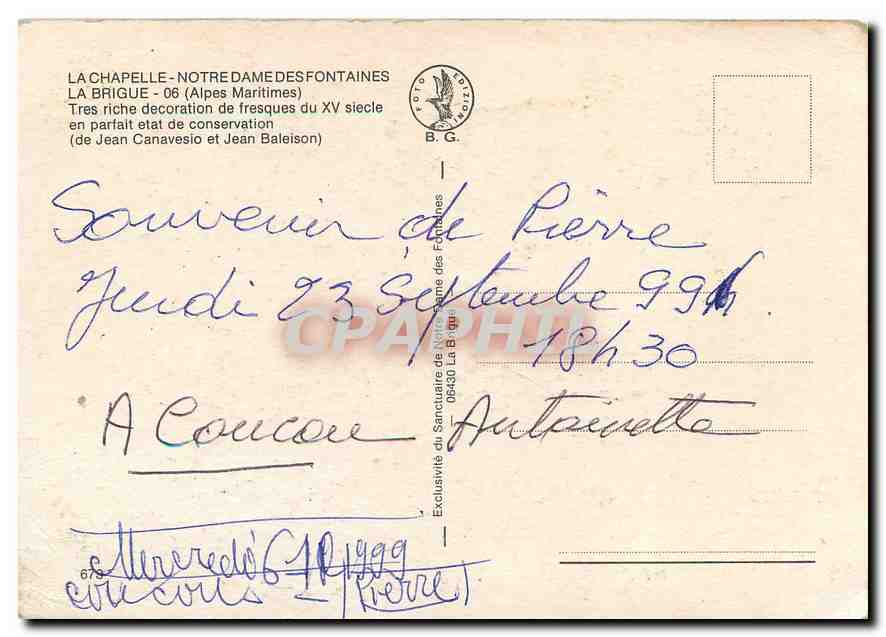 LA CHAPELLE - NOTRE DAME DES FONTAINES
LA BRIGUE - 06 (Alpes Maritimes)
Tres riche decoration de fresques du XV siecle
en parfait etat de conservation
(de Jean Canavesio et Jean Baleison)
FOTO EDIZIONI
B. G.
Souvenir de Pierre
Jeudi 23 Septembre 99
18h30
A Coucou Antoinette
Mercredi 6/10/1999
coucou - Pierre
Exclusivité du Sanctuaire de Notre Dame des Fontaines
— 06430 La Brigue —
CPAPHIL